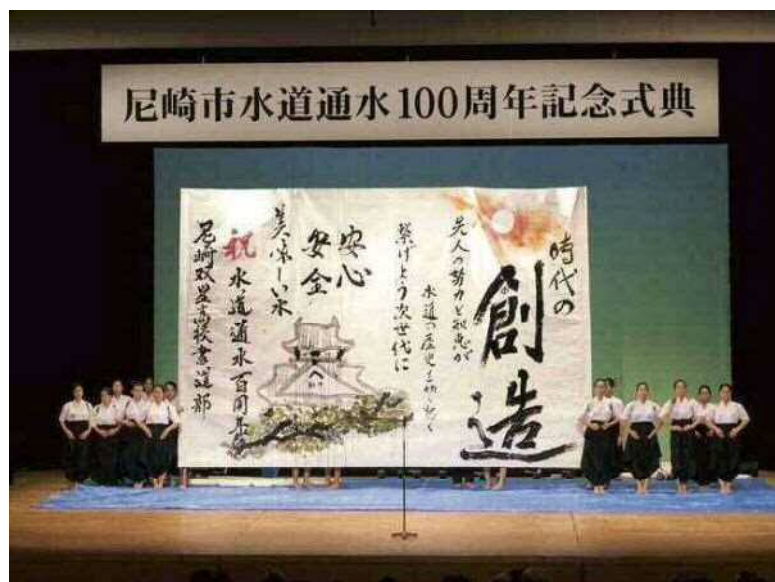 尼崎市水道通水100周年記念式典
時代の
創造
先人の努力と知恵が
水道の歴史を切り拓く
繋げよう次世代に
安心
安全
美味しい水
祝 水道通水百周年
尼崎双星高校書道部